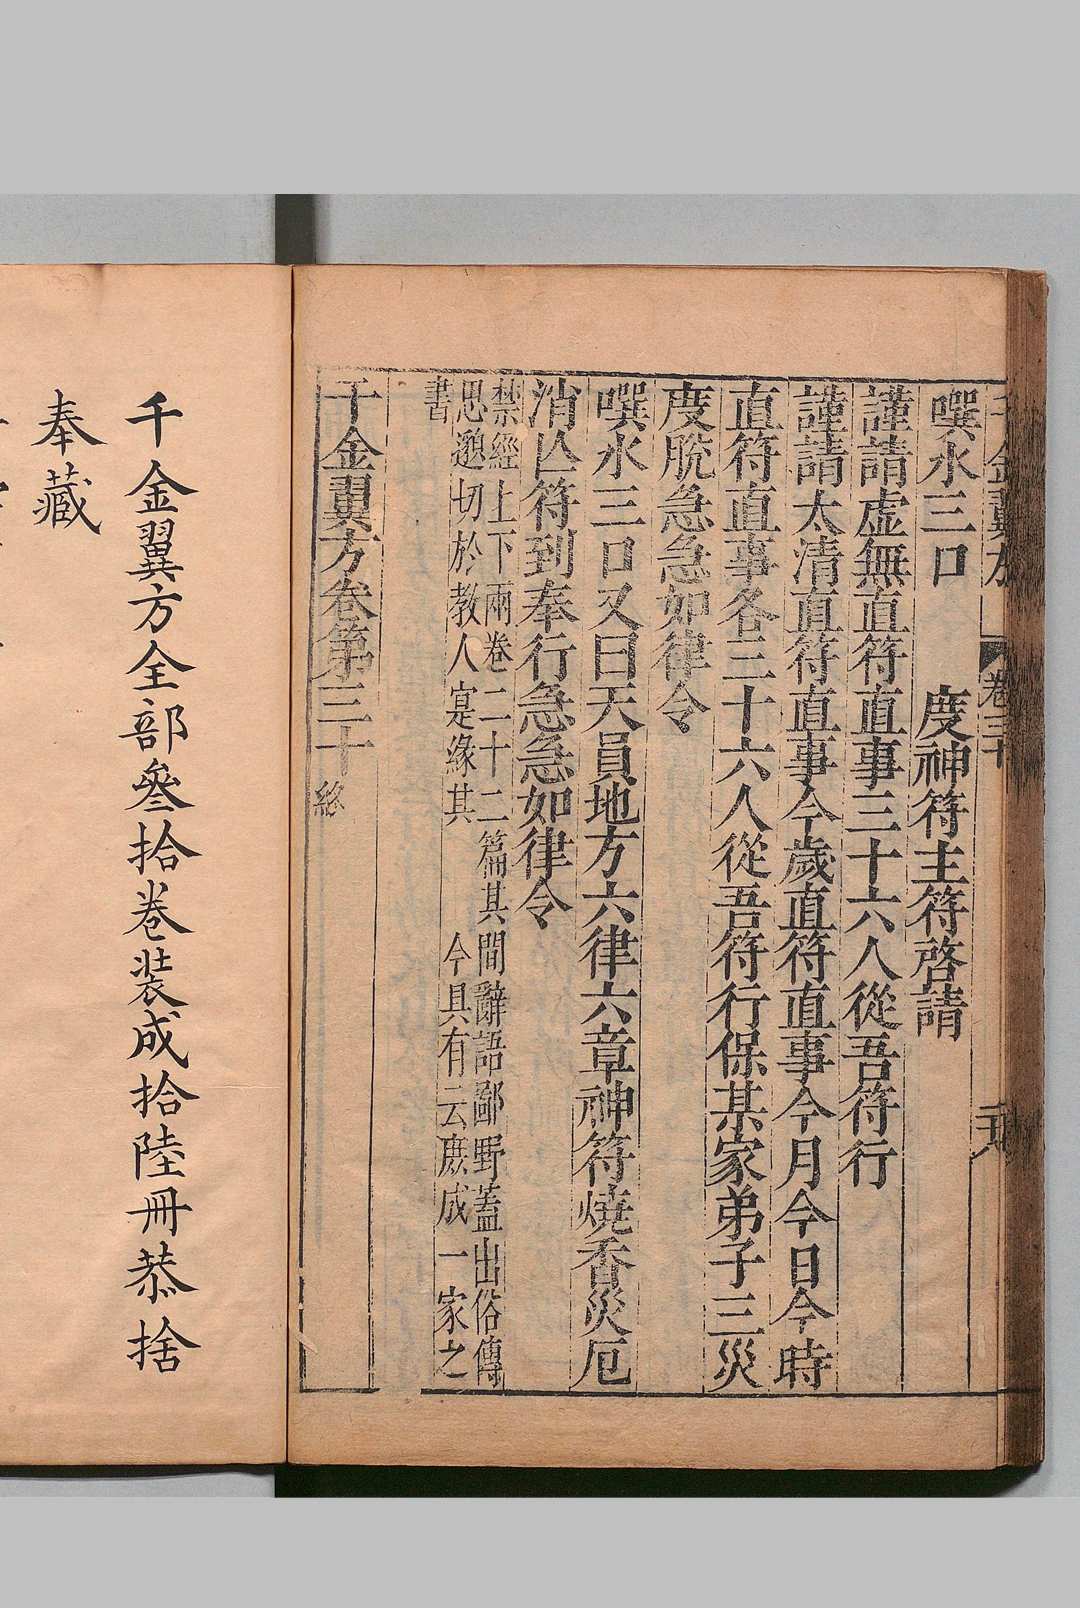 噀水三口　度神符主符啓請
謹請虛無直符直事三十六人從吾符行
謹請太清直符直事今歲直符直事今月今日今時
直符直事各三十六人從吾符行保某家弟子三災
度脫急急如律令
噀水三口又曰天員地方六律六章神符燒香災厄
消亾符到奉行急急如律令
禁經上下兩卷二十二篇其間辭語鄙野蓋出俗傳
思邈切於教人寔緣其今具有云庶成一家之
書
千金翼方卷第三十終
千金翼方全部叄拾卷装成拾陸冊恭捨
奉藏